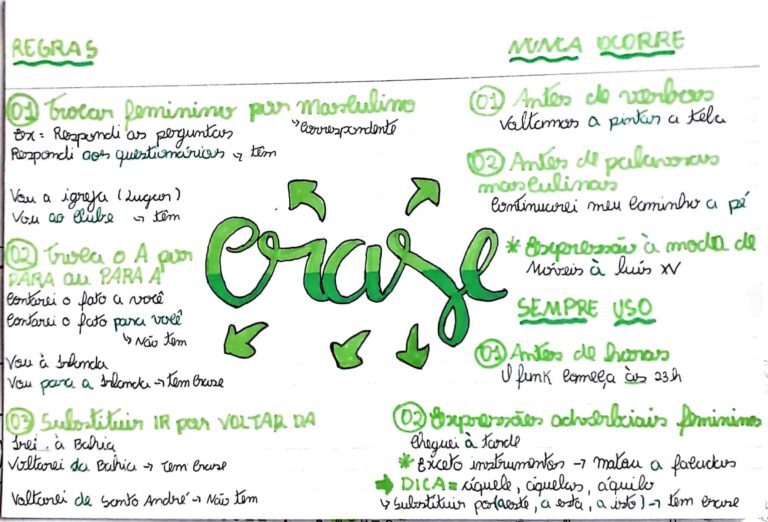 REGRAS
01 Trocar feminino por Masculino
↳ correspondente
Ex = Respondi as perguntas
Respondi aos questionários ↳ têm
Vou a igreja (Lugar)
Vou ao clube ↳ têm
02 Troca o A por
PARA ou PARA A
Contarei o fato a você
Contarei o fato para você
↳ Não tem
Vou à Irlanda
Vou para a Irlanda → tem crase
03 Substituir IR por VOLTAR DA
Irei à Bahia
Voltarei da Bahia → Tem crase
Voltarei de Santo André → Não tem
crase
NUNCA OCORRE
01 Antes de verbos
Voltamos a pintar a tela
02 Antes de palavras
masculinas
Continuarei meu caminho a pé
* Expressão à moda de
Móveis à Luís XV
SEMPRE USO
01 Antes de horas
O funk começa às 23h
02 Expressões adverbiais femininas
Cheguei à tarde
* Exceto instrumentos → matou a facadas
→ DICA = àquele, àquelas, àquilo
↳ Substituir por (a este, a esta, a isto) → têm crase